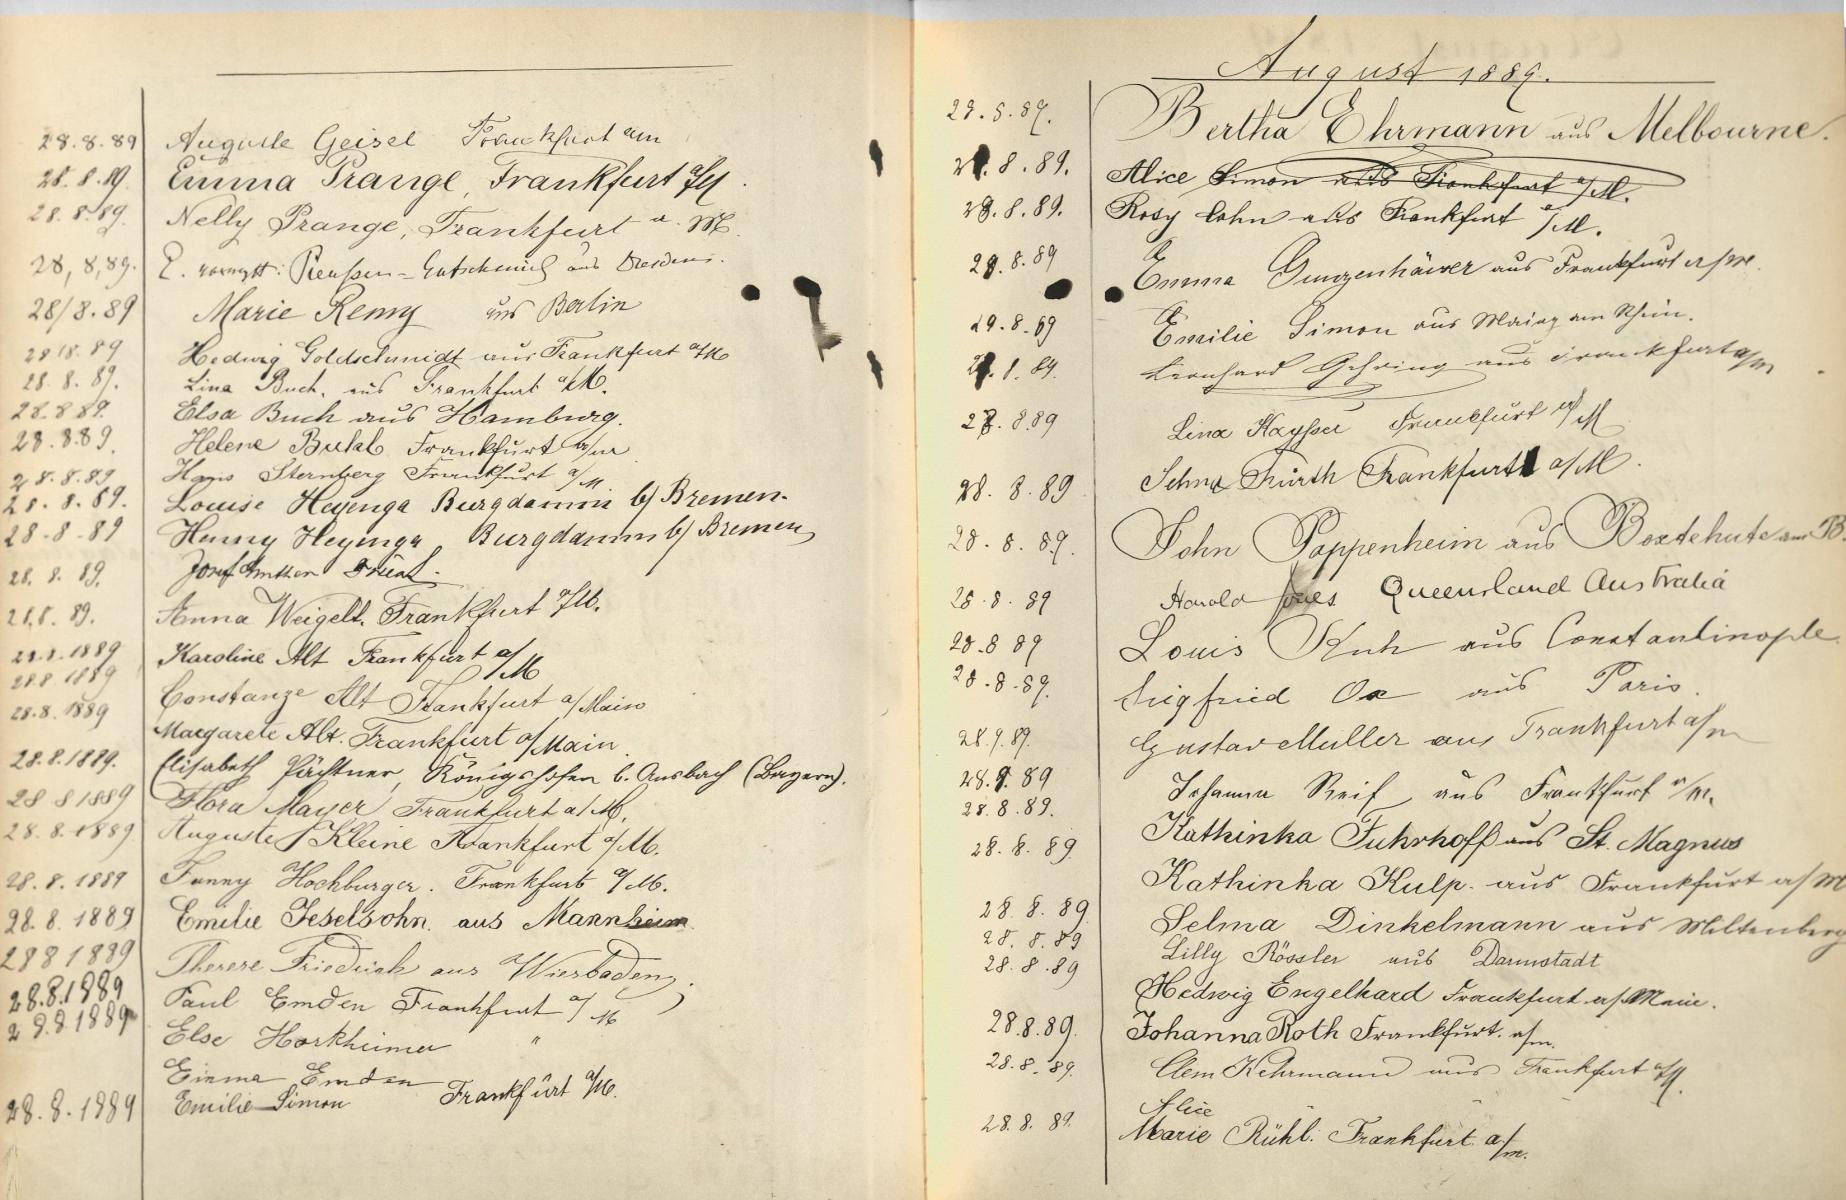 28.8.89 Auguste Geisel Frankfurt a/m
28.8.89. Emma Prange, Frankfurt a/M.
28.8.89. Nelly Prange, Frankfurt a. M.
28,8,89. E. Preußen-Gutschmid aus Dresden.
28/8.89 Marie Remy aus Berlin
28/8.89 Hedwig Goldschmidt aus Frankfurt a/M
28.8.89. Lina Buch, aus Frankfurt a/M.
28.8.89. Elsa Buch aus Hamburg.
28.8.89. Helene Frankfurt a/m
28.8.89 Sternberg Frankfurt a/M
28.8.89. Louise Heyenga Burgdamm b/ Bremen.
28.8.89 Henny Heyenga, Burgdamm b/ Bremen
28.8.89. Josef
28.8.89. Anna Weigelt. Frankfurt a/M.
28.8.1889 Karoline Alt Frankfurt a/M
28.8.1889 Constanze Alt Frankfurt a/Main
28.8.1889 Margarete Alt. Frankfurt a/Main.
28.8.1889. Elisabeth Pächtner, Königshofen b. Ansbach (Bayern).
28 8 1889 Flora Mayer Frankfurt a/M.
28.8.1889 Auguste Kleine Frankfurt a/M.
28.8.1889 Fanny Hochburger. Frankfurt a/M.
28.8.1889 Emilie Jeselsohn. aus Mannheim
28 8 1889 Therese Friedrich aus Wiesbaden.
28.8.1889 Paul Emden Frankfurt a/M
28.8.1889 Else Horkheimer "
Emma Emden
28.8.1889 Emilie Simon Frankfurt a/M.
August 1889.
Bertha Ehrmann aus Melbourne.
28.8.89. Alice Simon aus Frankfurt a/M.
28.8.89. Rosy Cohn aus Frankfurt a/M.
28.8.89 Emma Gunzenhäuser aus Frankfurt a/m.
29.8.89 Emilie Simon aus Mainz am Rhein.
Leonhard Gehring aus Frankfurt a/m
28.8.89 Lina Kaysser Frankfurt a/M
28.8.89 Fürth Frankfurt a/M.
28.8.89. John Pappenheim aus Boxtehute am B.
28.8.89 Harold Jones Queensland Australia
28.8 89 Louis Kuh aus Constantinople
28.8.89. Siegfried Ox aus Paris.
28.9.89. Gustav Muller aus Frankfurt a/m
28.8.89 Johanna Reif aus Frankfurt a/m.
28.8.89. Kathinka Fuhrhoff aus St. Magnus
28.8.89 Kathinka Kulp. aus Frankfurt a/M
28.8.89 Selma Dinkelmann aus Miltenberg
28.8.89 Lilly Rössler aus Darmstadt
28.8.89 Hedwig Engelhard Frankfurt a/Main.
28.8.89. Johanna Roth Frankfurt. a/m.
28.8.89. Clem Kehrmann aus Frankfurt a/M.
Alice
28.8.89. Marie Rühl. Frankfurt a/m.